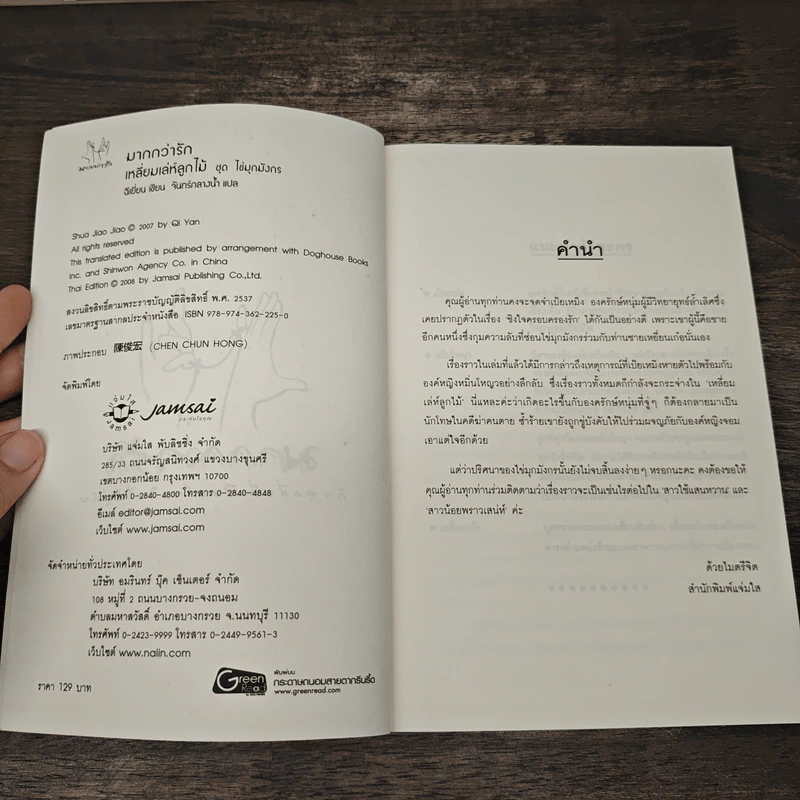 มากกว่ารัก
มากกว่ารัก
เหลี่ยมเล่ห์ลูกไม้ ชุด ไข่มุกมังกร
ฉีเยี่ยน เขียน จันทร์กลางน้ำ แปล
Shua Jiao Jiao © 2007 by Qi Yan
All rights reserved
This translated edition is published by arrangement with Doghouse Books
Inc. and Shinwon Agency Co. in China
Thai Edition © 2008 by Jamsai Publishing Co.,Ltd.
สงวนลิขสิทธิ์ตามพระราชบัญญัติลิขสิทธิ์ พ.ศ. 2537
เลขมาตรฐานสากลประจำหนังสือ ISBN 978-974-362-225-0
ภาพประกอบ 陳俊宏 (CHEN CHUN HONG)
จัดพิมพ์โดย
แจ่มใส Jamsai
Jamsai
บริษัท แจ่มใส พับลิชชิ่ง จำกัด
285/33 ถนนจรัญสนิทวงศ์ แขวงบางขุนศรี
เขตบางกอกน้อย กรุงเทพฯ 10700
โทรศัพท์ 0-2840-4800 โทรสาร 0-2840-4848
อีเมล์ editor@jamsai.com
เว็บไซต์ www.jamsai.com
จัดจำหน่ายทั่วประเทศโดย
บริษัท อมรินทร์ บุ๊ค เซ็นเตอร์ จำกัด
108 หมู่ที่ 2 ถนนบางกรวย-จงถนอม
ตำบลมหาสวัสดิ์ อำเภอบางกรวย จ.นนทบุรี 11130
โทรศัพท์ 0-2423-9999 โทรสาร 0-2449-9561-3
เว็บไซต์ www.naiin.com
ราคา 129 บาท
Green Read
พิมพ์บน
กระดาษถนอมสายตากรีนรี้ด
www.greenread.com
คำนำ
คุณผู้อ่านทุกท่านคงจะจดจำเปียเหมิง องครักษ์หนุ่มผู้มีวิทยายุทธ์ล้ำเลิศซึ่ง
เคยปรากฏตัวในเรื่อง 'ชิงใจครอบครองรัก' ได้กันเป็นอย่างดี เพราะเขาผู้นี้คือชาย
อีกคนหนึ่งซึ่งกุมความลับที่ซ่อนไข่มุกมังกรร่วมกับท่านชายเหยียนเก่อนั่นเอง
เรื่องราวในเล่มที่แล้วได้มีการกล่าวถึงเหตุการณ์ที่เปียเหมิงหายตัวไปพร้อมกับ
องค์หญิงหมิ่นโหญวอย่างลึกลับ ซึ่งเรื่องราวทั้งหมดก็กำลังจะกระจ่างใน 'เหลี่ยม
เล่ห์ลูกไม้' นี่แหละค่ะว่าเกิดอะไรขึ้นกับองครักษ์หนุ่มที่จู่ๆ ก็ต้องกลายมาเป็น
นักโทษในคดีฆ่าคนตาย ซ้ำร้ายเขายังถูกขู่บังคับให้ไปร่วมผจญภัยกับองค์หญิงจอม
เอาแต่ใจอีกด้วย
แต่ว่าปริศนาของไข่มุกมังกรนั้นยังไม่จบสิ้นลงง่ายๆ หรอกนะคะ คงต้องขอให้
คุณผู้อ่านทุกท่านร่วมติดตามว่าเรื่องราวจะเป็นเช่นไรต่อไปใน 'สาวใช้แสนหวาน' และ
'สาวน้อยพราวเสน่ห์' ค่ะ
ด้วยไมตรีจิต
สำนักพิมพ์แจ่มใส